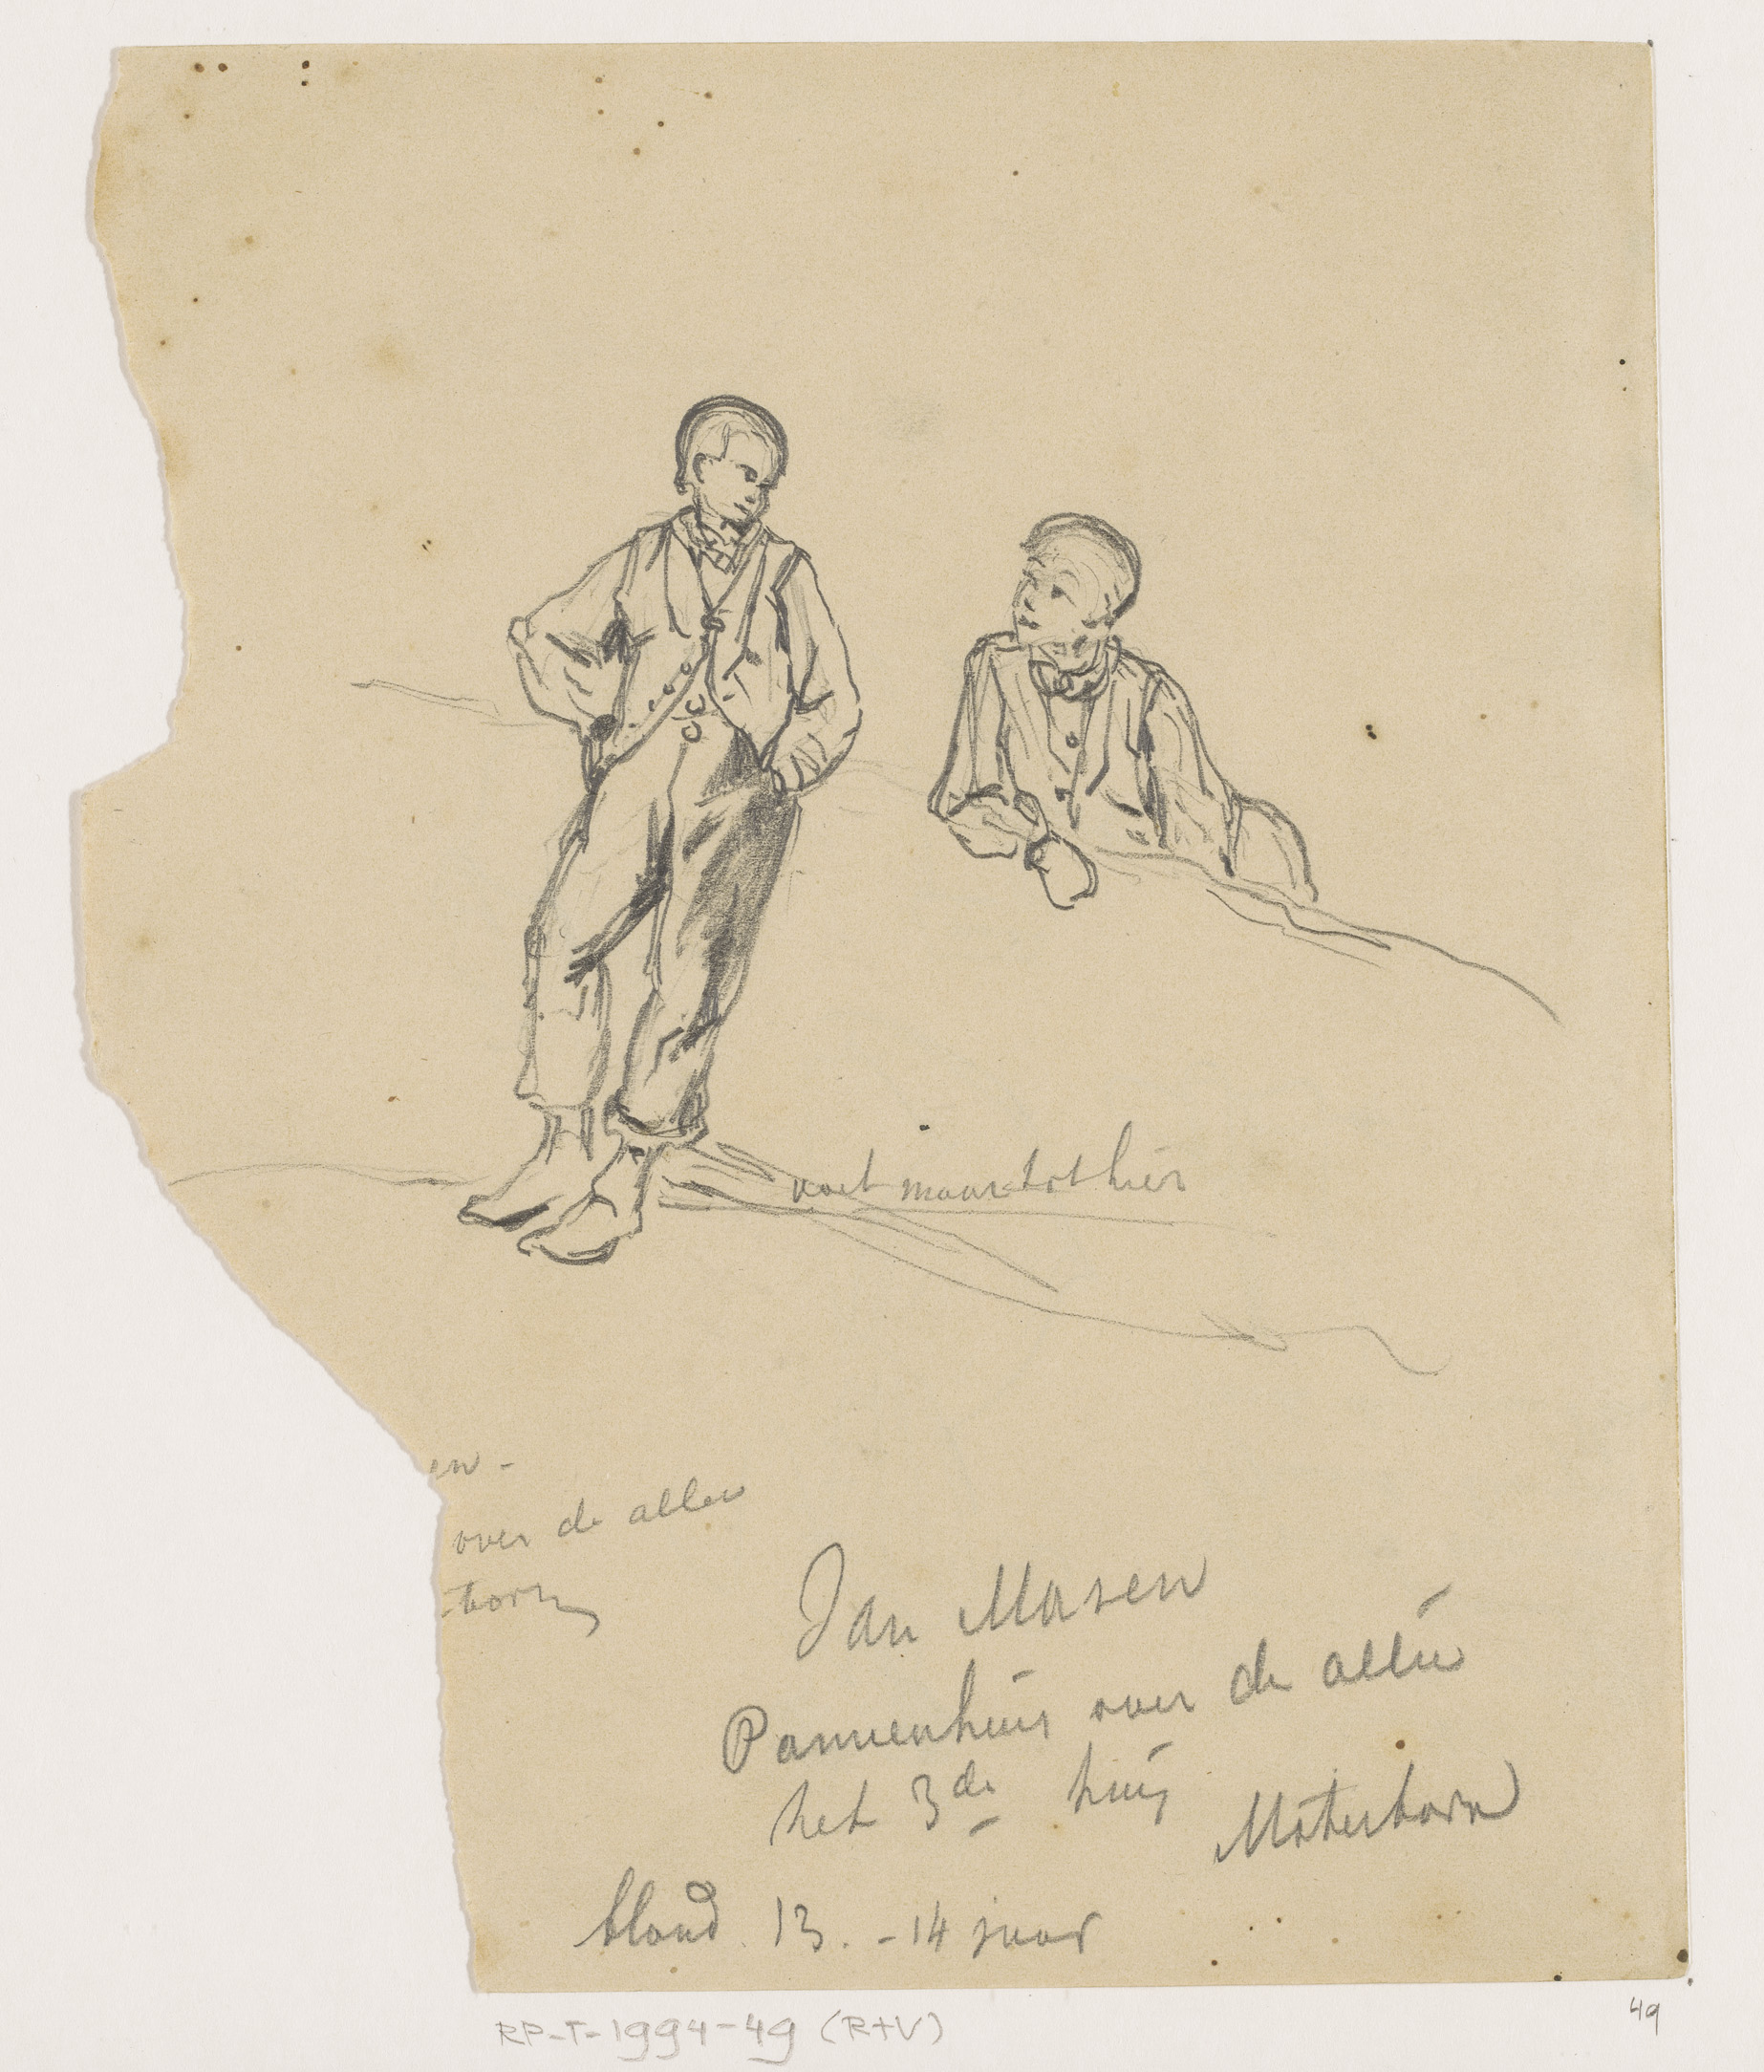 voet maar tot hier
en-
over de allee
-torn
Jan Masen
Pannenhuis over de allee
het 3de huis
Materborn
blond 13. - 14 jaar
RP-T-1994-49 (R+V)
49